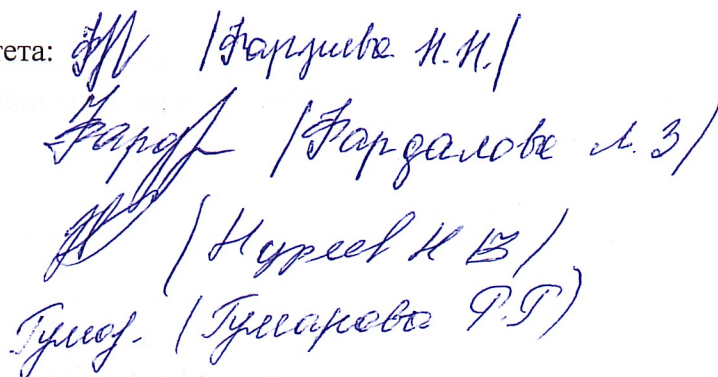 тета: /Фарзиева Н.Н./
Фард /Фардалова Л.З/
/Нуреев Н В/
Гумар. (Гумарова Р.Г)